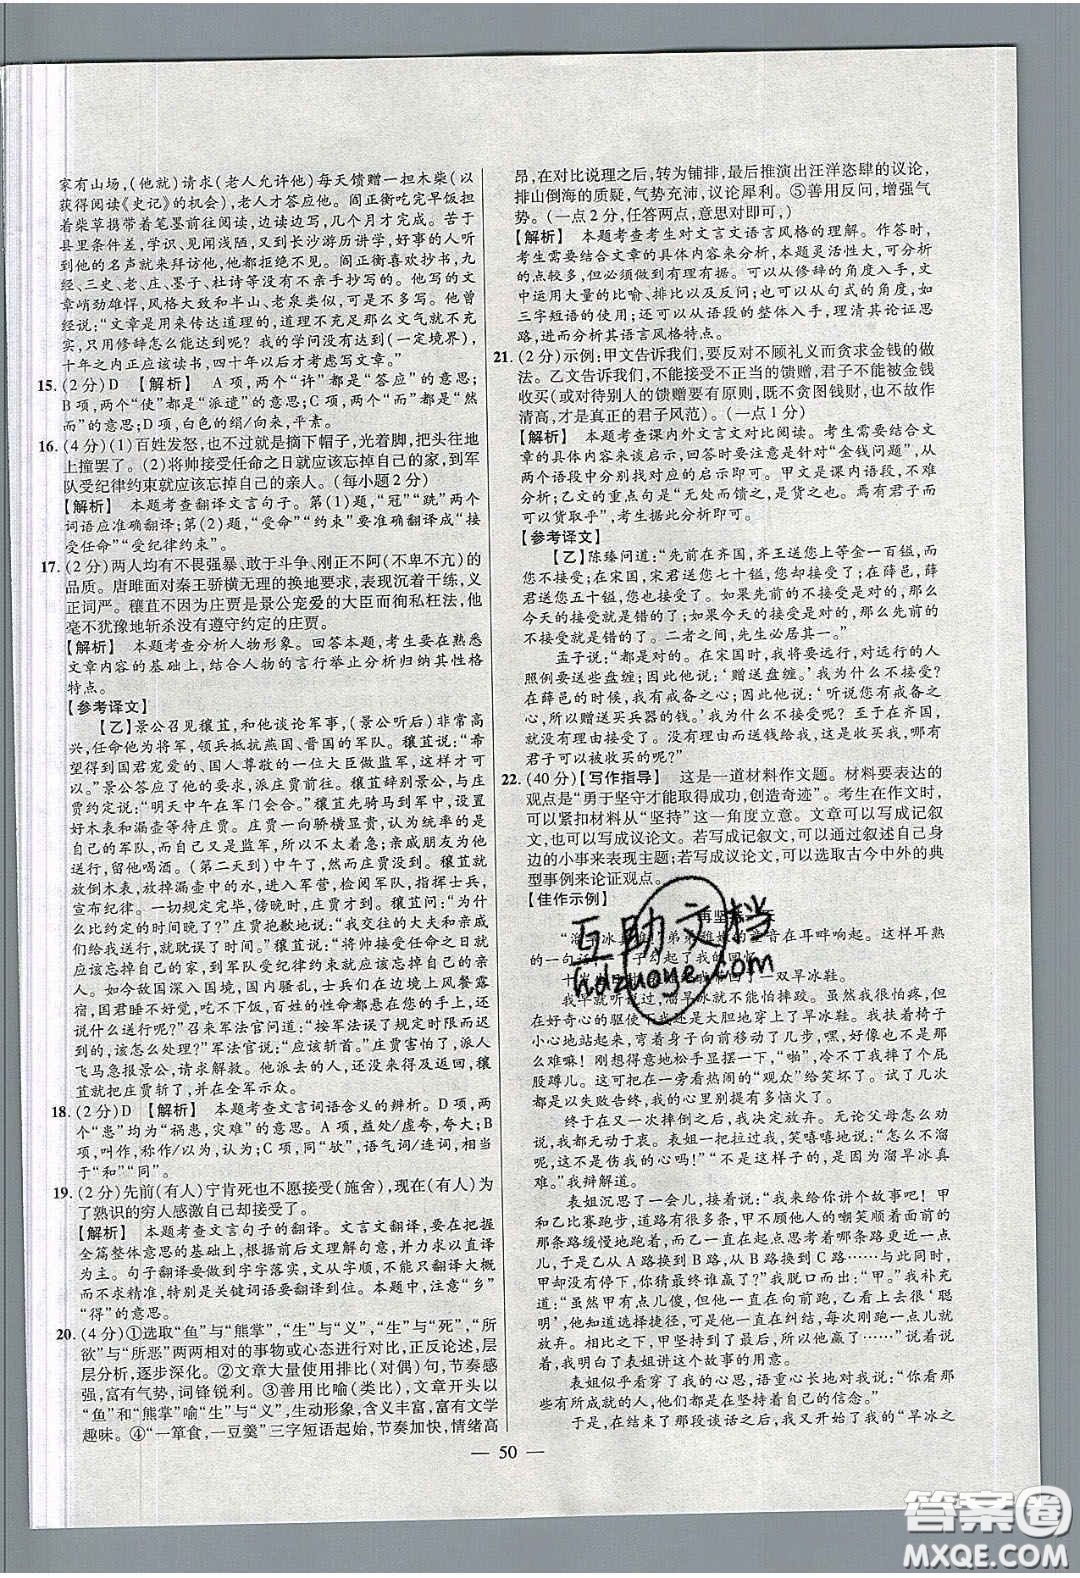 家有山场,(他就)请求(老人允许他)每天馈赠一担木柴(以
获得阅读《史记》的机会),老人才答应他。阎正衡吃完晚饭背
着柴草携带着笔墨前往阅读,边读边写,几个月才完成。苦于
县里条件差,学识、见闻浅陋,又到长沙游历讲学,好事的人听
到他的名声就来拜访他。阎正衡喜欢抄书,四子、五经、三史,九
经、三史、老、庄、墨子、杜诗等书无不亲手抄写的。他写的文
章峭劲雄悍,风格大致和半山、老泉类似,可是不得志。他曾
经说:“文章是用来传达道理的,道理不充沛那么文气就停滞,
只用修辞怎么能达到呢?我的学问没有达到(一定境界),
十年之内正应该读书,四十年以后才考虑写文章。”
15. (2 分)D 【解析】 A 项,两个“许”都是“答应”的意思;
B 项,两个“使”都是“派遣”的意思;C 项,两个“而”都是“然
而”的意思;D 项,白色的绢/向来,平素。
16. (4 分)(1)百姓发怒,也不过就是摘下帽子,光着脚,把头往地
上撞罢了。(2)将帅接受任命之日就应该忘掉自己的家,到军
队受纪律约束就应该忘掉自己的亲人。(每小题 2 分)
【解析】 本题考查翻译文言句子。第(1)题,“冠”“跣”两个
词语应准确翻译;第(2)题,“受命”“约束”要准确翻译成“接
受任命”“受纪律约束”。
17. (2 分)两人均有不畏强暴、敢于斗争、刚正不阿(不卑不亢)的
品质。唐雎面对秦王骄横无理的换地要求,表现沉着干练,义
正词严。穰苴不因为庄贾是景公宠爱的大臣而徇私枉法,他
毫不犹豫地斩杀没有遵守约定的庄贾。
【解析】 本题考查分析人物形象。回答本题,考生要在熟悉
文章内容的基础上,结合人物的言行举止分析归纳其性格
特点。
【参考译文】
【乙】景公召见穰苴,和他谈论军事,(景公听后)非常高
兴,任命他为将军,领兵抵抗燕国、晋国的军队。穰苴说:“希
望得到国君宠爱的、国人尊敬的一位大臣做监军,这样才可
以。”景公答应了他的要求,派庄贾前往。穰苴辞别景公,与庄
贾约定说:“明天中午在军门会合。”穰苴先骑马到了军营,设
好木表和漏壶等待庄贾。庄贾一向骄横显贵,认为统率的是
自己的军队,而自己又是监军,所以不太着急;亲戚朋友为他
送行,留他喝酒。(第二天到)中午了,然而庄贾没到。穰苴就
放倒木表,放掉漏壶中的水,进入军营,检阅军队,指挥士兵,
宣布纪律。一切规定完毕,傍晚时,庄贾才到。穰苴问:“为什
么比约定的时间晚了?”庄贾抱歉地说:“我交往的大夫和亲戚
们给我送行,就耽误了时间。”穰苴说:“将帅接受任命之日就
应该忘掉自己的家,到军队受纪律约束就应该忘掉自己的亲
人。如今敌国深入国境,国内骚乱,士兵们在边境上风餐露
宿,国君睡不好觉,吃不下饭,百姓的性命都悬在你手里,还
说什么送行呢?”召来军法官问道:“按军法误了规定时间而迟
到的,该怎么处理?”军法官说:“应该斩首。”庄贾害怕了,派人
飞马急报景公,请求解救。他派去的人还没来得及返回,穰
苴就把庄贾斩了,并在全军示众。
18. (2 分)D 【解析】 本题考查文言词语含义的辨析。D 项,两
个“患”均为“祸患,灾难”的意思。A 项,益处/虚夸,夸大;B
项,叫作,称作/以为,认为;C 项,同“欤”,语气词/连词,相当
于“和”“同”。
19. (2 分)先前(有人)宁肯死也不愿接受(施舍),现在(有人)为
了熟识的穷人感激自己却接受了。
【解析】 本题考查文言句子的翻译。文言文翻译,要在把握
全篇整体意思的基础上,根据前后文理解句意,并尽量以直译
为主。句子翻译要做到字字落实,文从字顺,不能只翻译大概
而不求精准,特别是关键词语要翻译到位。本题中,注意“乡”
“得”的意思。
20. (4 分)①选取“鱼”与“熊掌”,“生”与“义”,“生”与“死”,“所
欲”与“所恶”两两相对的事物或心态进行对比,正反论述,层
层分析,逐步深化。②文章大量使用排比(对偶)句,节奏感
强,富有气势,词锋锐利。③善用比喻(类比),文章开头以
“鱼”和“熊掌”喻“生”与“义”,生动形象,含义丰富,富有文学
趣味。④“一箪食,一豆羹”三字短语起始,节奏加快,情绪高
昂,在对比说理之后,转为铺排,最后推演出汪洋恣肆的议论,
排山倒海的质疑,气势充沛,议论犀利。⑤善用反问,增强气
势。(一点 2 分,任答两点,意思对即可,)
【解析】 本题考查考生对文言文语言风格的理解。作答时,
考生需要结合文章的具体内容来分析,本题灵活性大,可分析
的点较多,但必须做到有理有据。可以从修辞的角度入手,文
中运用大量的比喻、排比及反问;也可以从句式的角度入手,如
三字短语的使用;还可以从语段的整体入手,理清其论证思
路,进而分析其语言风格特点。
21. (2 分)示例:甲文告诉我们,要反对不顾礼义而贪求金钱的做
法。乙文告诉我们,不能接受不正当的馈赠,君子不能被金钱
收买(或对待别人的馈赠要有原则,既不贪图钱财,也不故作
清高,才是真正的君子风范)。(一点 1 分)
【解析】 本题考查课内外文言文对比阅读。考生需要结合文
章的具体内容来谈启示,回答时要注意针对“金钱问题”,从
两个语段中分别找对应的启示即可。甲文是课内语段,不再
赘述;乙文的重点句是“无处而馈之,是货之也。焉有君子而
可以货取乎”,据此分析即可。
【参考译文】
【乙】陈臻问道:“先前在齐国,齐王送您上等金一百镒,
您不接受;在宋国,宋君送您七十镒,您接受了;在薛邑,薛
君送您五十镒,您也接受了。如果先前的不接受是对的,那么
今天的接受就是错的了;如果今天的接受是对的,那么先前的
不接受就是错的了。二者之间,先生必居其一。”
孟子说:“都是对的。在宋国时,我将要远行,对远行的人
照例要送些盘缠;因此他说:‘赠送盘缠。’我为什么不接受?
在薛邑的时候,我有戒备之心;因此他说:‘听说您有戒备之
心,所以赠送买兵器的钱。’我为什么不接受?至于在齐国,
就没有理由接受了。没有理由而送钱给我,这是收买我,哪有
君子可以用钱收买的呢?”
22. (40 分)【写作指导】 这是一道材料作文题。材料要表达的
观点是“勇于坚守才能取得成功,创造奇迹”。考生在作文时,可
以紧扣材料从“坚持”这一角度立意。文章可以写成记叙
文,也可以写成议论文。若写成记叙文,可以通过叙述自己身
边的小事来表现主题;若写成议论文,可以选取古今中外的典
型事例来论证观点。
【佳作示例】
再坚
“溜旱冰真难!”弟弟稚嫩的童音在耳畔响起。这样耳熟
的一句话,一下子勾起了我的回忆。
十岁 一双旱冰鞋。
我早就听说过,溜旱冰最不能怕摔跤。虽然我很怕疼,但
在好奇心的驱使下我还是大胆地穿上了旱冰鞋。我扶着椅子
小心地站稳,弯着身子向前挪动了几步,嘿,好像也不是那
么难嘛!刚想得意地松手显摆一下,“啪”,冷不丁我摔了个屁
股蹲儿。把我这在一旁看热闹的“观众”给笑坏了。试了几次,
都是以失败告终,我的心里别提有多恼火了。
终于在又一次摔倒之后,我决定放弃。无论父母怎么劝
说,我都无动于衷。表姐一把拉过我,笑嘻嘻地说:“怎么不溜
呢,这不是在伤我的心吗!”“不是这样子的,是溜旱冰真
难。”我辩解道。
表姐沉思了一会儿,对我说:“我来给你讲个故事吧。甲
和乙比赛跑步,道路有很多条,甲不顾人们的嘲笑顺着面前的
那条路缓慢地跑,而乙却在起点思考着哪条路更近更好跑,一
会儿从 A 路换到 B 路,从 B 路换到 C 路……与此同时,
甲却没有停下,你猜最终谁赢了?”我脱口而出:“甲。”我补充
道:“虽然甲有点儿傻,但是他一直在向前跑,乙虽然很聪
明,他知道选择捷径,可是他只要遇到一点儿困难就
放弃。相比之下,甲坚持了下来,所以……”说着说着
我明白了表姐讲这个故事的用意。
表姐似乎看穿了我的心思,语重心长地对我说:“你看那
些成功的人,他们都是在坚持着自己的信念。”
于是,在结束了那段谈话之后,我又开始了我的“旱冰之
— 50 —
互助文档
hdzuoye.com
答案圈
MXQE.COM